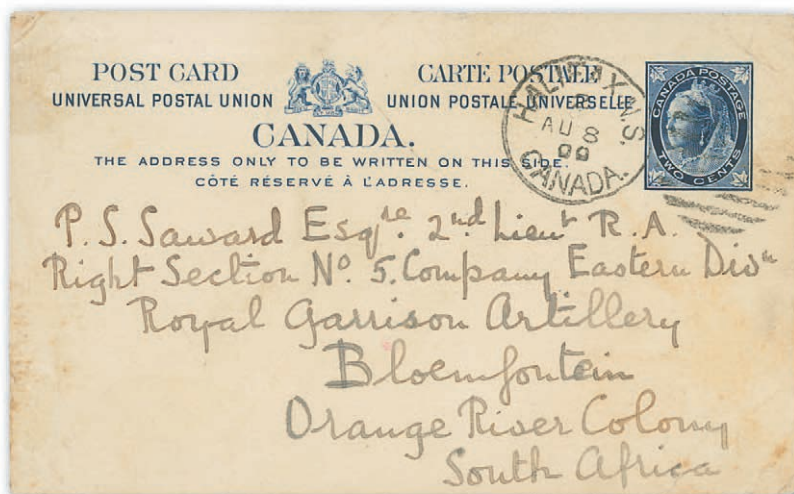 POST CARD CARTE POSTALE
UNIVERSAL POSTAL UNION UNION POSTALE UNIVERSELLE
CANADA.
THE ADDRESS ONLY TO BE WRITTEN ON THIS SIDE.
CÔTÉ RÉSERVÉ À L'ADRESSE.
HALIFAX N.S.
AU 8
00
CANADA.
CANADA POSTAGE
TWO CENTS
P. S. Saward Esqre. 2nd Lieut R. A.
Right Section No. 5. Company Eastern Divn
Royal Garrison Artillery
Bloemfontein
Orange River Colony
South Africa